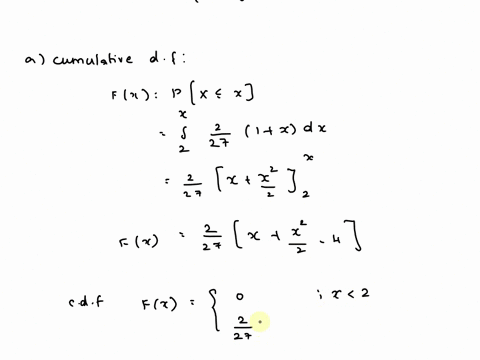 a) cumulative d.f:
F(x): P[x ≤ x]
= ∫₂ˣ 2/27 (1+x) dx
= 2/27 [x + x²/2]₂ˣ
F(x) = 2/27 [x + x²/2 - 4]
c.d.f F(x) = { 0 ; x < 2
2/27